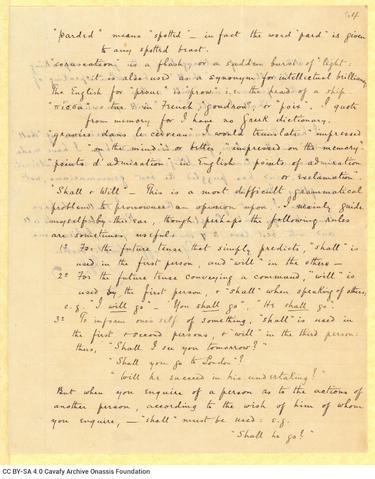 "parded" means "spotted" – in fact the word "pard" is given
to any spotted beast.
"coruscation" is a flash, or a sudden burst of "light":
it is also used as a synonym for intellectual brilliancy
The English for "proue" is "prow" i.e. the head of a ship
"πίσσα" is tar in French "goudron" or "poix". I quote
from memory for I have no Greek dictionary.
"gravées dans le cerveau" I would translate "impressed
on the mind" or better "impressed on the memory"
"points d'admiration" in English "points of admiration
or exclamation".
"Shall & Will" – This is a most difficult grammatical
problem to pronounce an opinion upon. I mainly guide
myself by the ear, though perhaps the following rules
are sometimes useful:
1° For the future tense that simply predicts, "shall" is
used in the first person, and "will" in the others –
2° For the future tense conveying a command, "will" is
used by the first person, & "shall" when speaking of others,
e.g. "I will go". "You shall go", "He shall go".
3° To inform oneself of something, "shall" is used in
the first & second persons, & "will" in the third person:
thus, "Shall I see you tomorrow?"
"Shall you go to London"?
"Will he succeed in his undertaking?"
But when you enquire of a person as to the actions of
another person, according to the wish of him of whom
you enquire, – "shall" must be used: e.g.
"Shall he go?"
CC BY-SA 4.0 Cavafy Archive Onassis Foundation